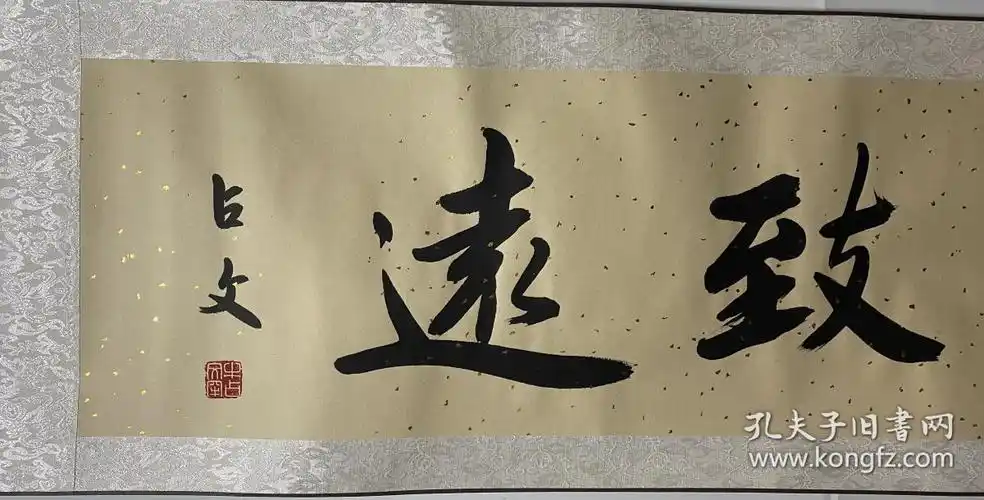 致遠
占文
孔夫子旧書网
www.kongfz.com